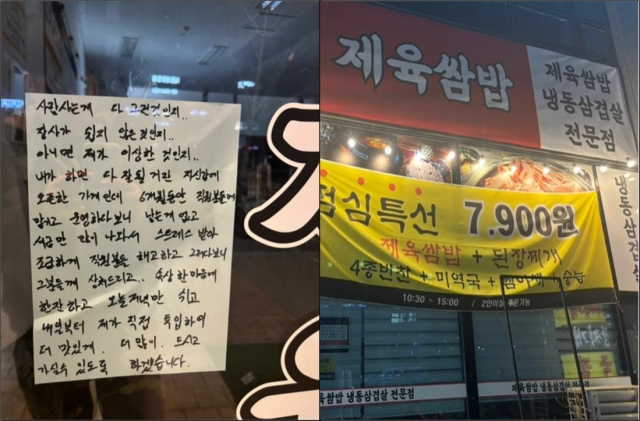 사람사는게 다 그런것인지..
장사가 쉽지 않은것인지..
아니면 제가 이상한 것인지..
내가 하면 다 잘될거란 자신감에
오픈한 가게인데 6개월동안 직원분들에
맡기고 운영하다보니 남는게 없고
세금만 많이 나와서 스트레스 받아
조급하게 직원분들 해고하고 그러다보니
그분들께 상처드리고.. 속상한 마음에
한잔하고 오늘저녁만 쉬고
내일부터 제가 직접 투입하여
더 맛있게. 더 많이. 드시고
가실수 있도록 하겠습니다.
제육쌈밥
제육쌈밥
냉동삼겹살
전문점
점심특선 7.900원
제육쌈밥 + 된장찌개
4종반찬 + 미역국 +
10:30 - 15:00 / 2인이상 주문가능
제육쌈밥 냉동삼겹살 전문점
제육쌈밥 냉동삼겹살 전문점